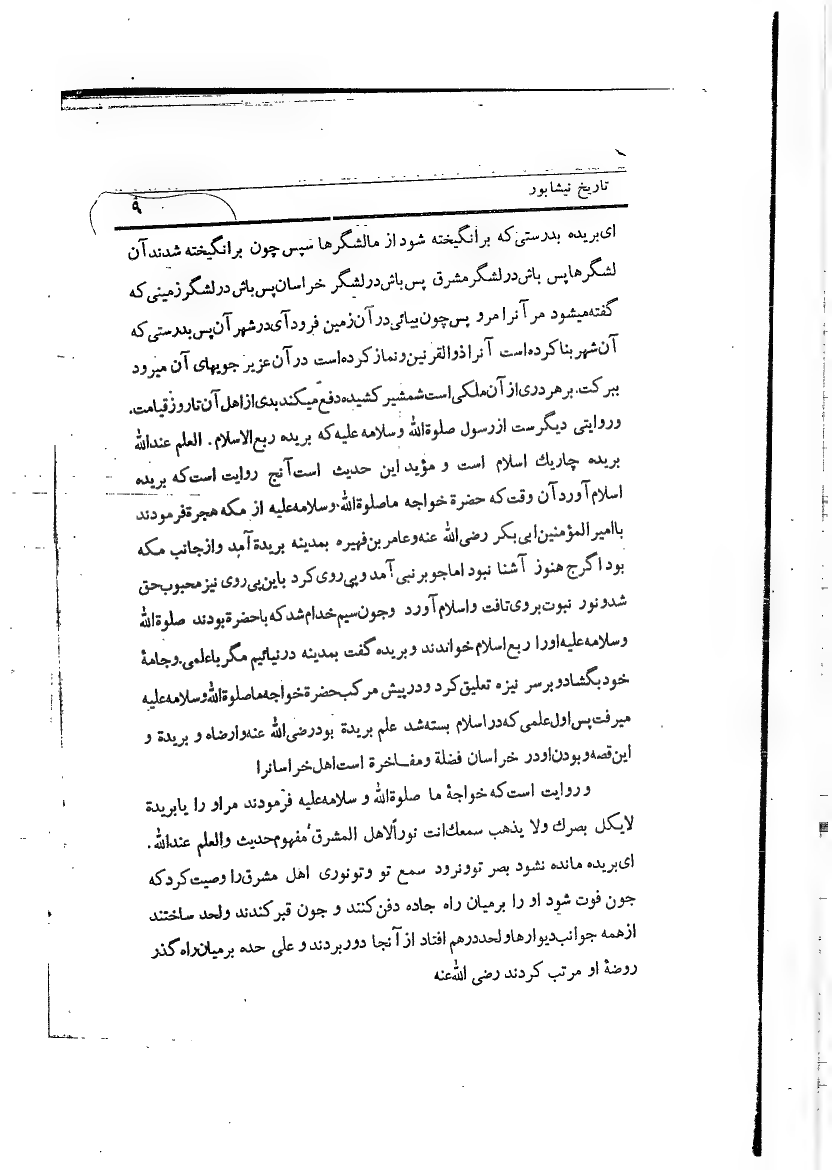 تاریخ نیشابور
۹
ای بریده بدرستی که برانگیخته شود از ما لشگرها سپس چون برانگیخته شدند آن
لشگرها پس باش در لشگر مشرق پس باش در لشگر خراسان پس باش در لشگر زمینی که
گفته میشود مر آنرا مرو پس چون بیائی در آن زمین فرود آی در شهر آن پس بدرستی که
آن شهر بنا کرده است آنرا ذوالقرنین و نماز کرده است در آن عزیر جویهای آن میرود
ببرکت. بر هر دری از آن ملکی است شمشیر کشیده دفع میکند بدی از اهل آن تا روز قیامت.
و روایتی دیگرست از رسول صلوة الله و سلامه علیه که بریده ربع الاسلام. العلم عندالله
بریده چاریك اسلام است و مؤید این حدیث است آنچ روایت است که بریده
اسلام آورد آن وقت که حضرة خواجه ما صلوة الله وسلامه علیه از مکه هجرة فرمودند
با امیر المؤمنین ابی بکر رضی الله عنه و عامر بن فهیره بمدینه بریدة آمد و از جانب مکه
بود اگرچ هنوز آشنا نبود اما جو بر نبی آمد و پی روی کرد باین پی روی نیز محبوب حق
شد و نور نبوت بروی تافت و اسلام آورد وجون سیم خدام شد که با حضرة بودند صلوة الله
وسلامه علیه اورا ربع اسلام خواندند و بریده گفت بمدینه در نیائیم مگر باعلمی. وجامهٔ
خود بگشاد و بر سر نیزه تعلیق کرد و در پیش مرکب حضرة خواجه ما صلوة الله وسلامه علیه
میرفت پس اول علمی که در اسلام بسته شد علم بریدة بود رضی الله عنه وارضاه و بریدة و
این قصه و بودن او در خراسان فضلة و مفاخرة است اهل خراسانرا
و روایت است که خواجهٔ ما صلوة الله و سلامه علیه فرمودند مر او را یا بریدة
لایکل بصرك ولا یذهب سمعك انت نوراً لاهل المشرق مفهوم حدیث والعلم عندالله.
ای بریده مانده نشود بصر تو ونرود سمع تو وتو نوری اهل مشرق را وصیت کرد که
جون فوت شود او را بر میان راه جاده دفن کنند و جون قبر کندند ولحد ساختند
از همه جوانب دیوارها ولحد درهم افتاد از آنجا دور بردند و علی حده بر میان راه گذر
روضهٔ او مرتب کردند رضی الله عنه